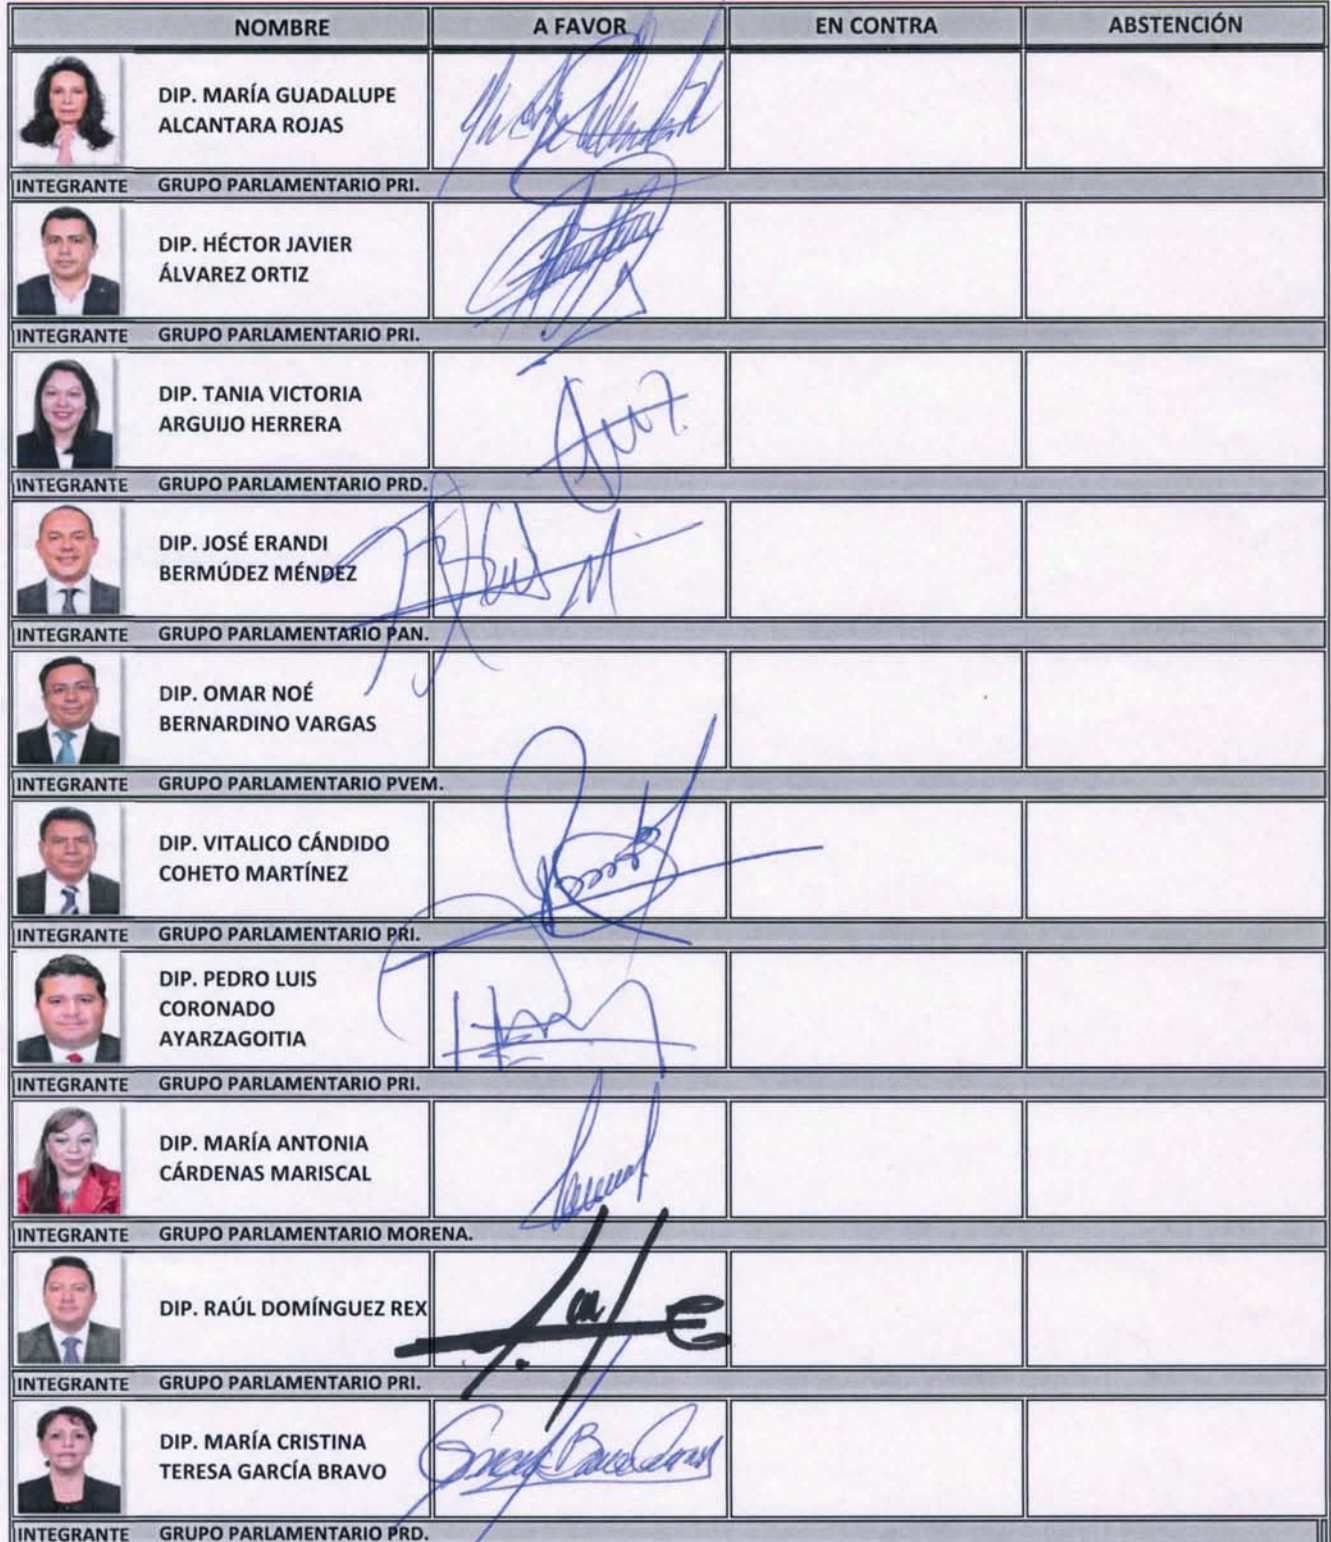 NOMBRE A FAVOR EN CONTRA ABSTENCIÓN
DIP. MARÍA GUADALUPE
ALCANTARA ROJAS
INTEGRANTE GRUPO PARLAMENTARIO PRI.
DIP. HÉCTOR JAVIER
ÁLVAREZ ORTIZ
INTEGRANTE GRUPO PARLAMENTARIO PRI.
DIP. TANIA VICTORIA
ARGUIJO HERRERA
INTEGRANTE GRUPO PARLAMENTARIO PRD.
DIP. JOSÉ ERANDI
BERMÚDEZ MÉNDEZ
INTEGRANTE GRUPO PARLAMENTARIO PAN.
DIP. OMAR NOÉ
BERNARDINO VARGAS
INTEGRANTE GRUPO PARLAMENTARIO PVEM.
DIP. VITALICO CÁNDIDO
COHETO MARTÍNEZ
INTEGRANTE GRUPO PARLAMENTARIO PRI.
DIP. PEDRO LUIS
CORONADO
AYARZAGOITIA
INTEGRANTE GRUPO PARLAMENTARIO PRI.
DIP. MARÍA ANTONIA
CÁRDENAS MARISCAL
INTEGRANTE GRUPO PARLAMENTARIO MORENA.
DIP. RAÚL DOMÍNGUEZ REX
INTEGRANTE GRUPO PARLAMENTARIO PRI.
DIP. MARÍA CRISTINA
TERESA GARCÍA BRAVO
INTEGRANTE GRUPO PARLAMENTARIO PRD.